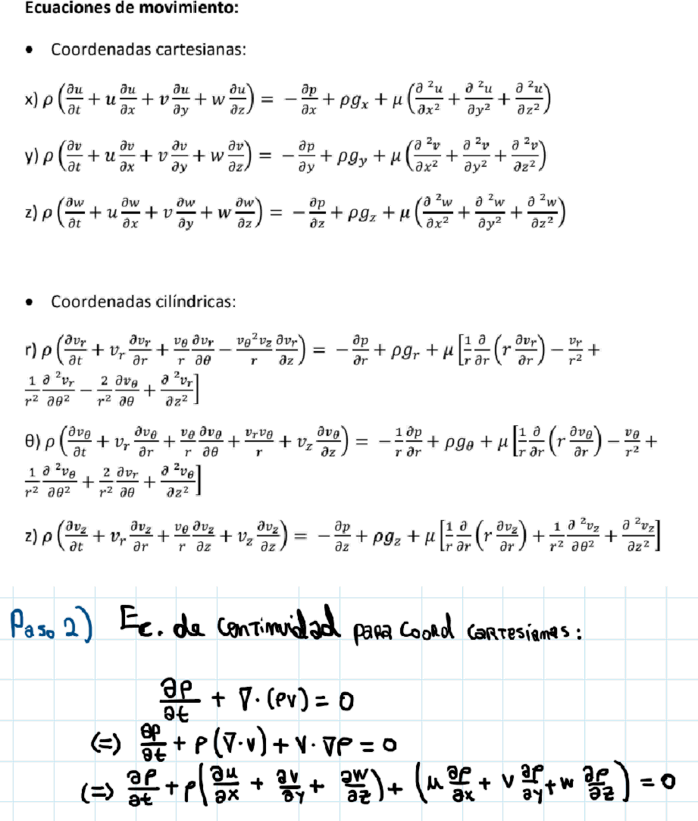 Ecuaciones de movimiento:
• Coordenadas cartesianas:
x) ρ (∂u/∂t + u ∂u/∂x + v ∂u/∂y + w ∂u/∂z) = − ∂p/∂x + ρgₓ + μ (∂ ²u/∂x² + ∂ ²u/∂y² + ∂ ²u/∂z²)
y) ρ (∂v/∂t + u ∂v/∂x + v ∂v/∂y + w ∂v/∂z) = − ∂p/∂y + ρg_y + μ (∂ ²v/∂x² + ∂ ²v/∂y² + ∂ ²v/∂z²)
z) ρ (∂w/∂t + u ∂w/∂x + v ∂w/∂y + w ∂w/∂z) = − ∂p/∂z + ρg_z + μ (∂ ²w/∂x² + ∂ ²w/∂y² + ∂ ²w/∂z²)
• Coordenadas cilíndricas:
r) ρ (∂v_r/∂t + v_r ∂v_r/∂r + v_θ/r ∂v_r/∂θ − v_θ²v_z/r ∂v_r/∂z) = − ∂p/∂r + ρg_r + μ [1/r ∂/∂r (r ∂v_r/∂r) − v_r/r² +
1/r² ∂ ²v_r/∂θ² − 2/r² ∂v_θ/∂θ + ∂ ²v_r/∂z²]
θ) ρ (∂v_θ/∂t + v_r ∂v_θ/∂r + v_θ/r ∂v_θ/∂θ + v_rv_θ/r + v_z ∂v_θ/∂z) = − 1/r ∂p/∂r + ρg_θ + μ [1/r ∂/∂r (r ∂v_θ/∂r) − v_θ/r² +
1/r² ∂ ²v_θ/∂θ² + 2/r² ∂v_r/∂θ + ∂ ²v_θ/∂z²]
z) ρ (∂v_z/∂t + v_r ∂v_z/∂r + v_θ/r ∂v_z/∂z + v_z ∂v_z/∂z) = − ∂p/∂z + ρg_z + μ [1/r ∂/∂r (r ∂v_z/∂r) + 1/r² ∂ ²v_z/∂θ² + ∂ ²v_z/∂z²]
Paso 2) Ec. de continuidad para coord cartesianas:
∂ρ/∂t + ∇·(ρv) = 0
(=) ∂ρ/∂t + ρ(∇·v) + v·∇ρ = 0
(=) ∂ρ/∂t + ρ(∂u/∂x + ∂v/∂y + ∂w/∂z) + (u ∂ρ/∂x + v ∂ρ/∂y + w ∂ρ/∂z) = 0